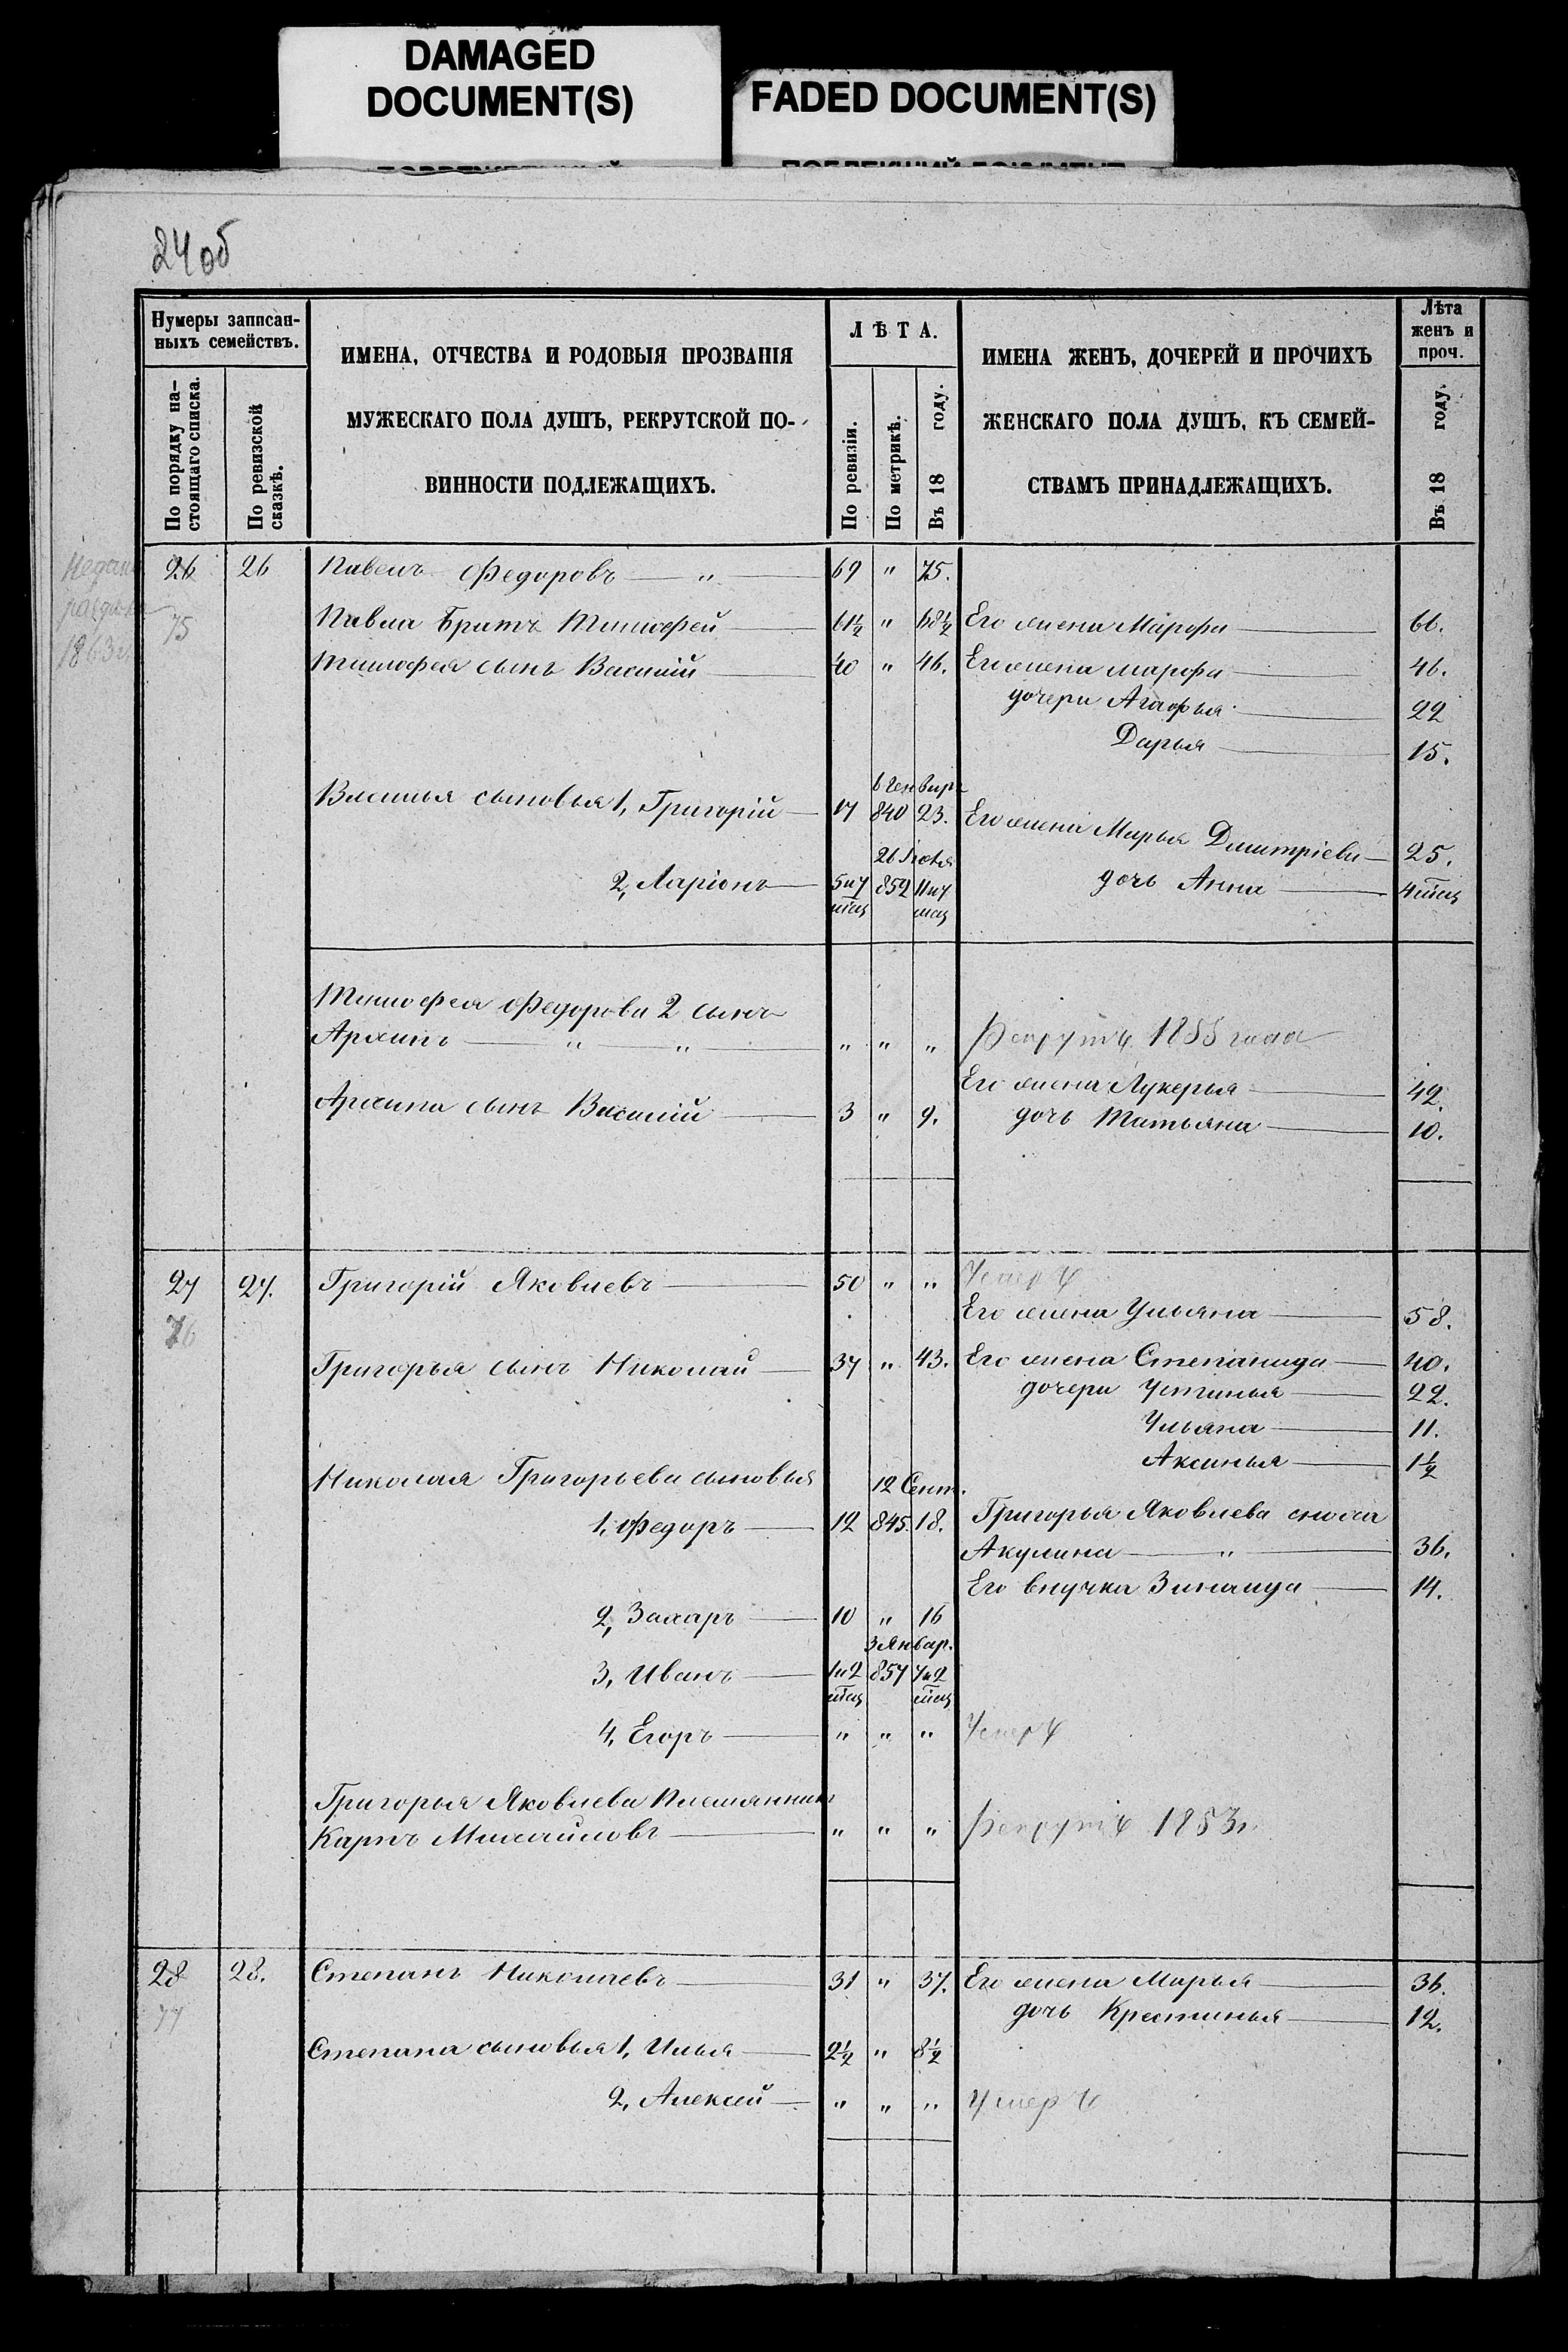 DAMAGED
DOCUMENT(S)
FADED DOCUMENT(S)
24 об
Нумеры записан-
ныхъ семействъ.
По порядку на-
стоящаго списка.
По ревизской
сказкѣ.
ИМЕНА, ОТЧЕСТВА И РОДОВЫЯ ПРОЗВАНІЯ
МУЖЕСКАГО ПОЛА ДУШЪ, РЕКРУТСКОЙ ПО-
ВИННОСТИ ПОДЛЕЖАЩИХЪ.
ЛѢТА.
По ревизіи.
По метрикѣ.
Въ 18 году.
ИМЕНА ЖЕНЪ, ДОЧЕРЕЙ И ПРОЧИХЪ
ЖЕНСКАГО ПОЛА ДУШЪ, КЪ СЕМЕЙ-
СТВАМЪ ПРИНАДЛЕЖАЩИХЪ.
Лѣта
женъ и
проч.
Въ 18 году.
1863г.
26 26 Павелъ Федоровъ — " — 69 " 75.
75
Павла братъ Тимофей — 61½ " 68½ Его жена Марфа — 66.
Тимофея сынъ Василій — 40 " 46. Его жена Марфа — 46.
дочери Агафья — 22
Дарья — 15.
6 Генваря
Василья сыновья 1, Григорій — 17 840 23. Его жена Марья Дмитріева — 25.
26 Іюня
2, Ларіонъ — 5 и 7 мѣсяц 852 11 и 7 мѣсяц дочь Анна — 4 мѣсяц
Тимофея Федорова 2 сынъ
Архипъ — " — " — " " " Рекрутъ 1855 года
Его жена Лукерья — 42.
Архипа сынъ Василій — 3 " 9. дочь Татьяна — 10.
27 27. Григорій Яковлевъ — 50 " " Умеръ
76
Его жена Ульяна — 58.
Григорья сынъ Николай — 37 " 43. Его жена Степанида — 40.
дочери Устинья — 22.
Ульяна — 11.
Аксинья — 1½
Николая Григорьева сыновья 12 Сент.
1, Федоръ — 12 845. 18. Григорья Яковлева сноха
Акулина — " — 36.
Его внучка Зинаида — 14.
2, Захаръ — 10 " 16
3 Январ.
3, Иванъ — 1 и 2 мѣсяц 857 7 и 2 мѣсяц
4, Егоръ — " " " Умеръ
Григорья Яковлева племянникъ
Карпъ Михайловъ — " " " Рекрутъ 1853г.
28 28. Степанъ Николаевъ — 31 " 37. Его жена Марья — 36.
77
дочь Крестинья — 12.
Степана сыновья 1, Илья — 2½ " 8½
2, Алексей — " " " Умеръ